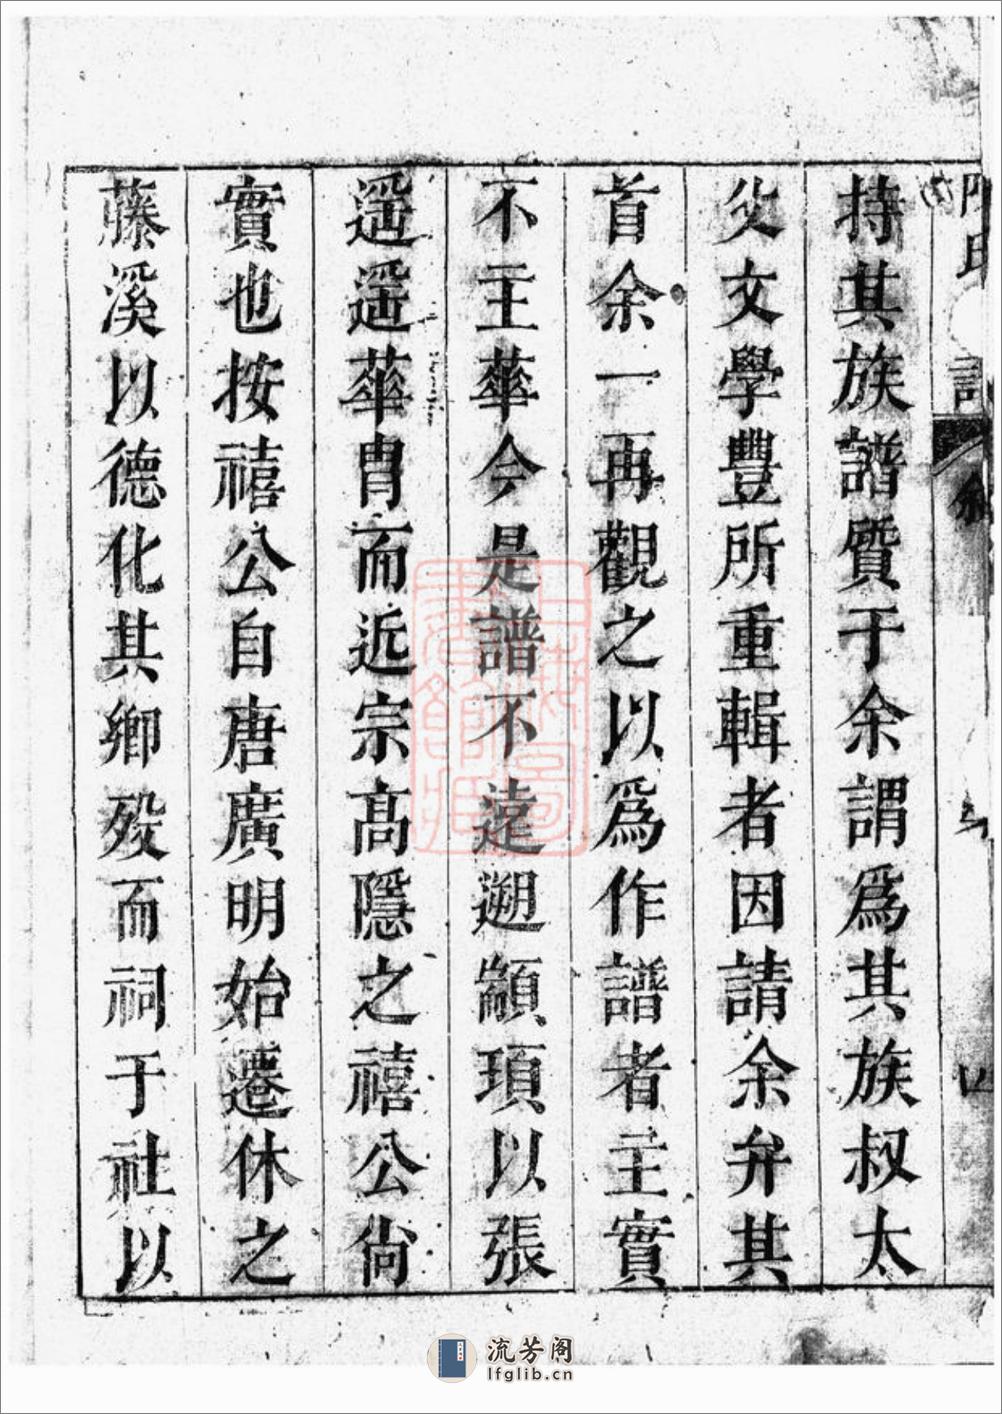 持其族譜質于余謂爲其族叔太
父文學豐所重輯者因請余弁其
首余一再觀之以爲作譜者主實
不主華今是譜不遠遡顓頊以張
遥遥華胄而近宗高隱之禧公尚
實也按禧公自唐廣明始遷休之
藤溪以德化其鄉歿而祠于社以
上海圖書館藏
流芳阁
lfglib.cn